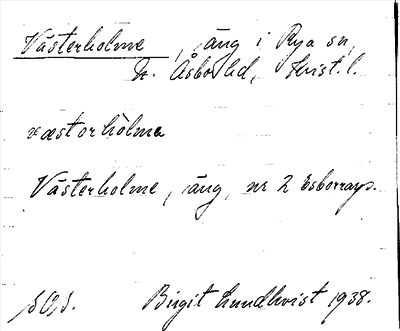 Västerholme, äng i Rya sn,
N. Åsbo hd, Krist. l.
væstorhòlma
Västerholme, äng, nr 2 Esborrap.
SOS. Birgit Lundkvist 1938.